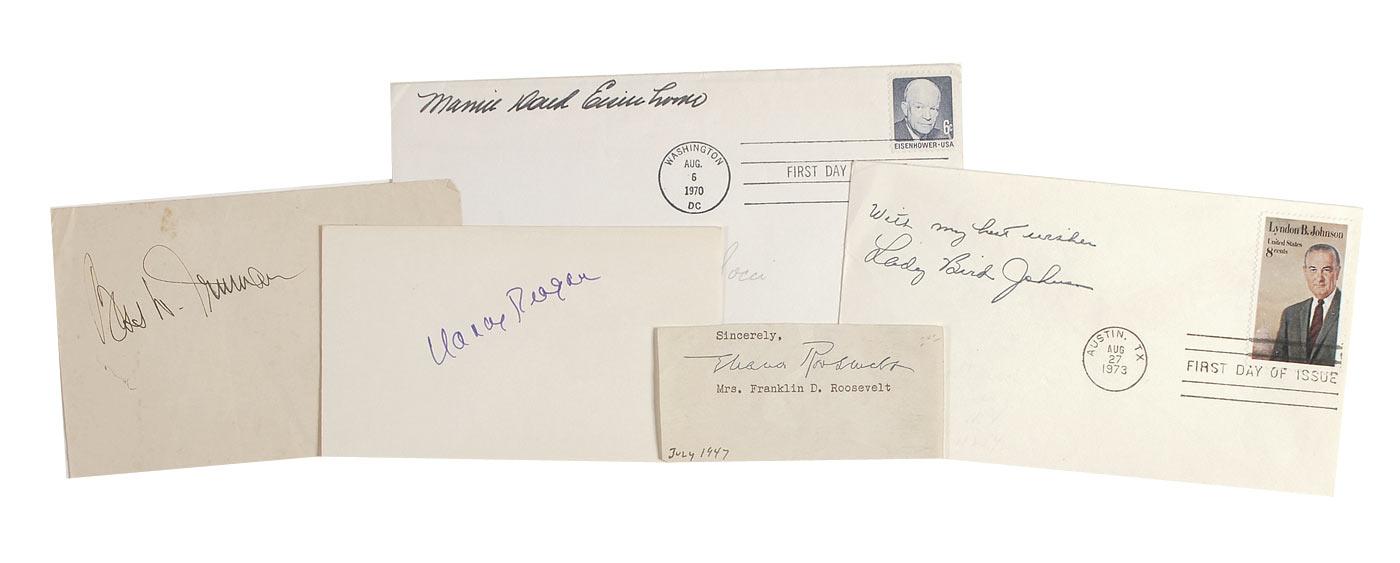 Mamie Doud Eisenhower
WASHINGTON
AUG.
6
1970
DC
FIRST DAY
6¢
EISENHOWER·USA
Bess W. Truman
Nancy Reagan
With my best wishes
Lady Bird Johnson
Lyndon B. Johnson
United States
8 cents
AUSTIN, TX
AUG
27
1973
FIRST DAY OF ISSUE
Sincerely,
Eleanor Roosevelt
Mrs. Franklin D. Roosevelt
July 1947